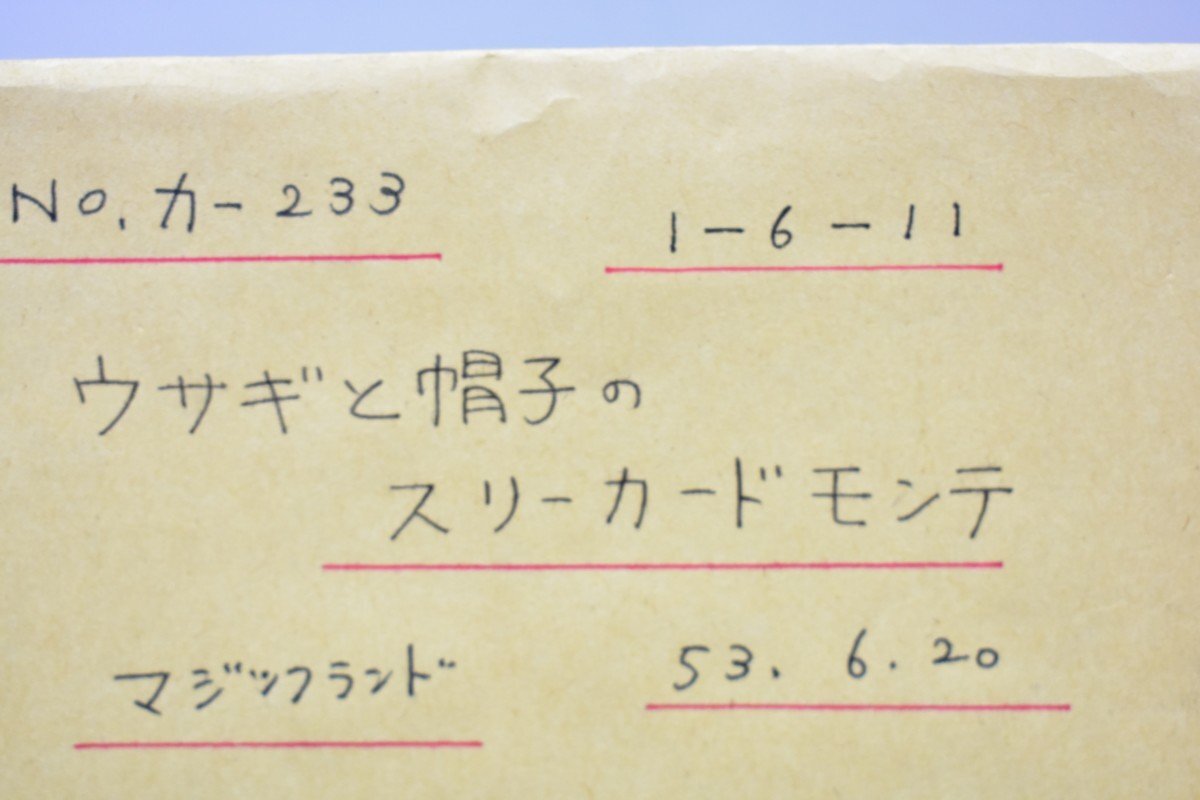 No. カ-233
1-6-11
ウサギと帽子の
スリーカードモンテ
マジックランド
53. 6. 20